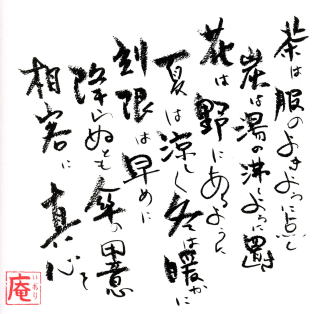 茶は服のよきように点し
炭は湯の沸くように置き
花は野にあるように
夏は涼しく冬は暖かに
刻限は早めに
降らぬとも傘の用意
相客に真心を
庵
いおり